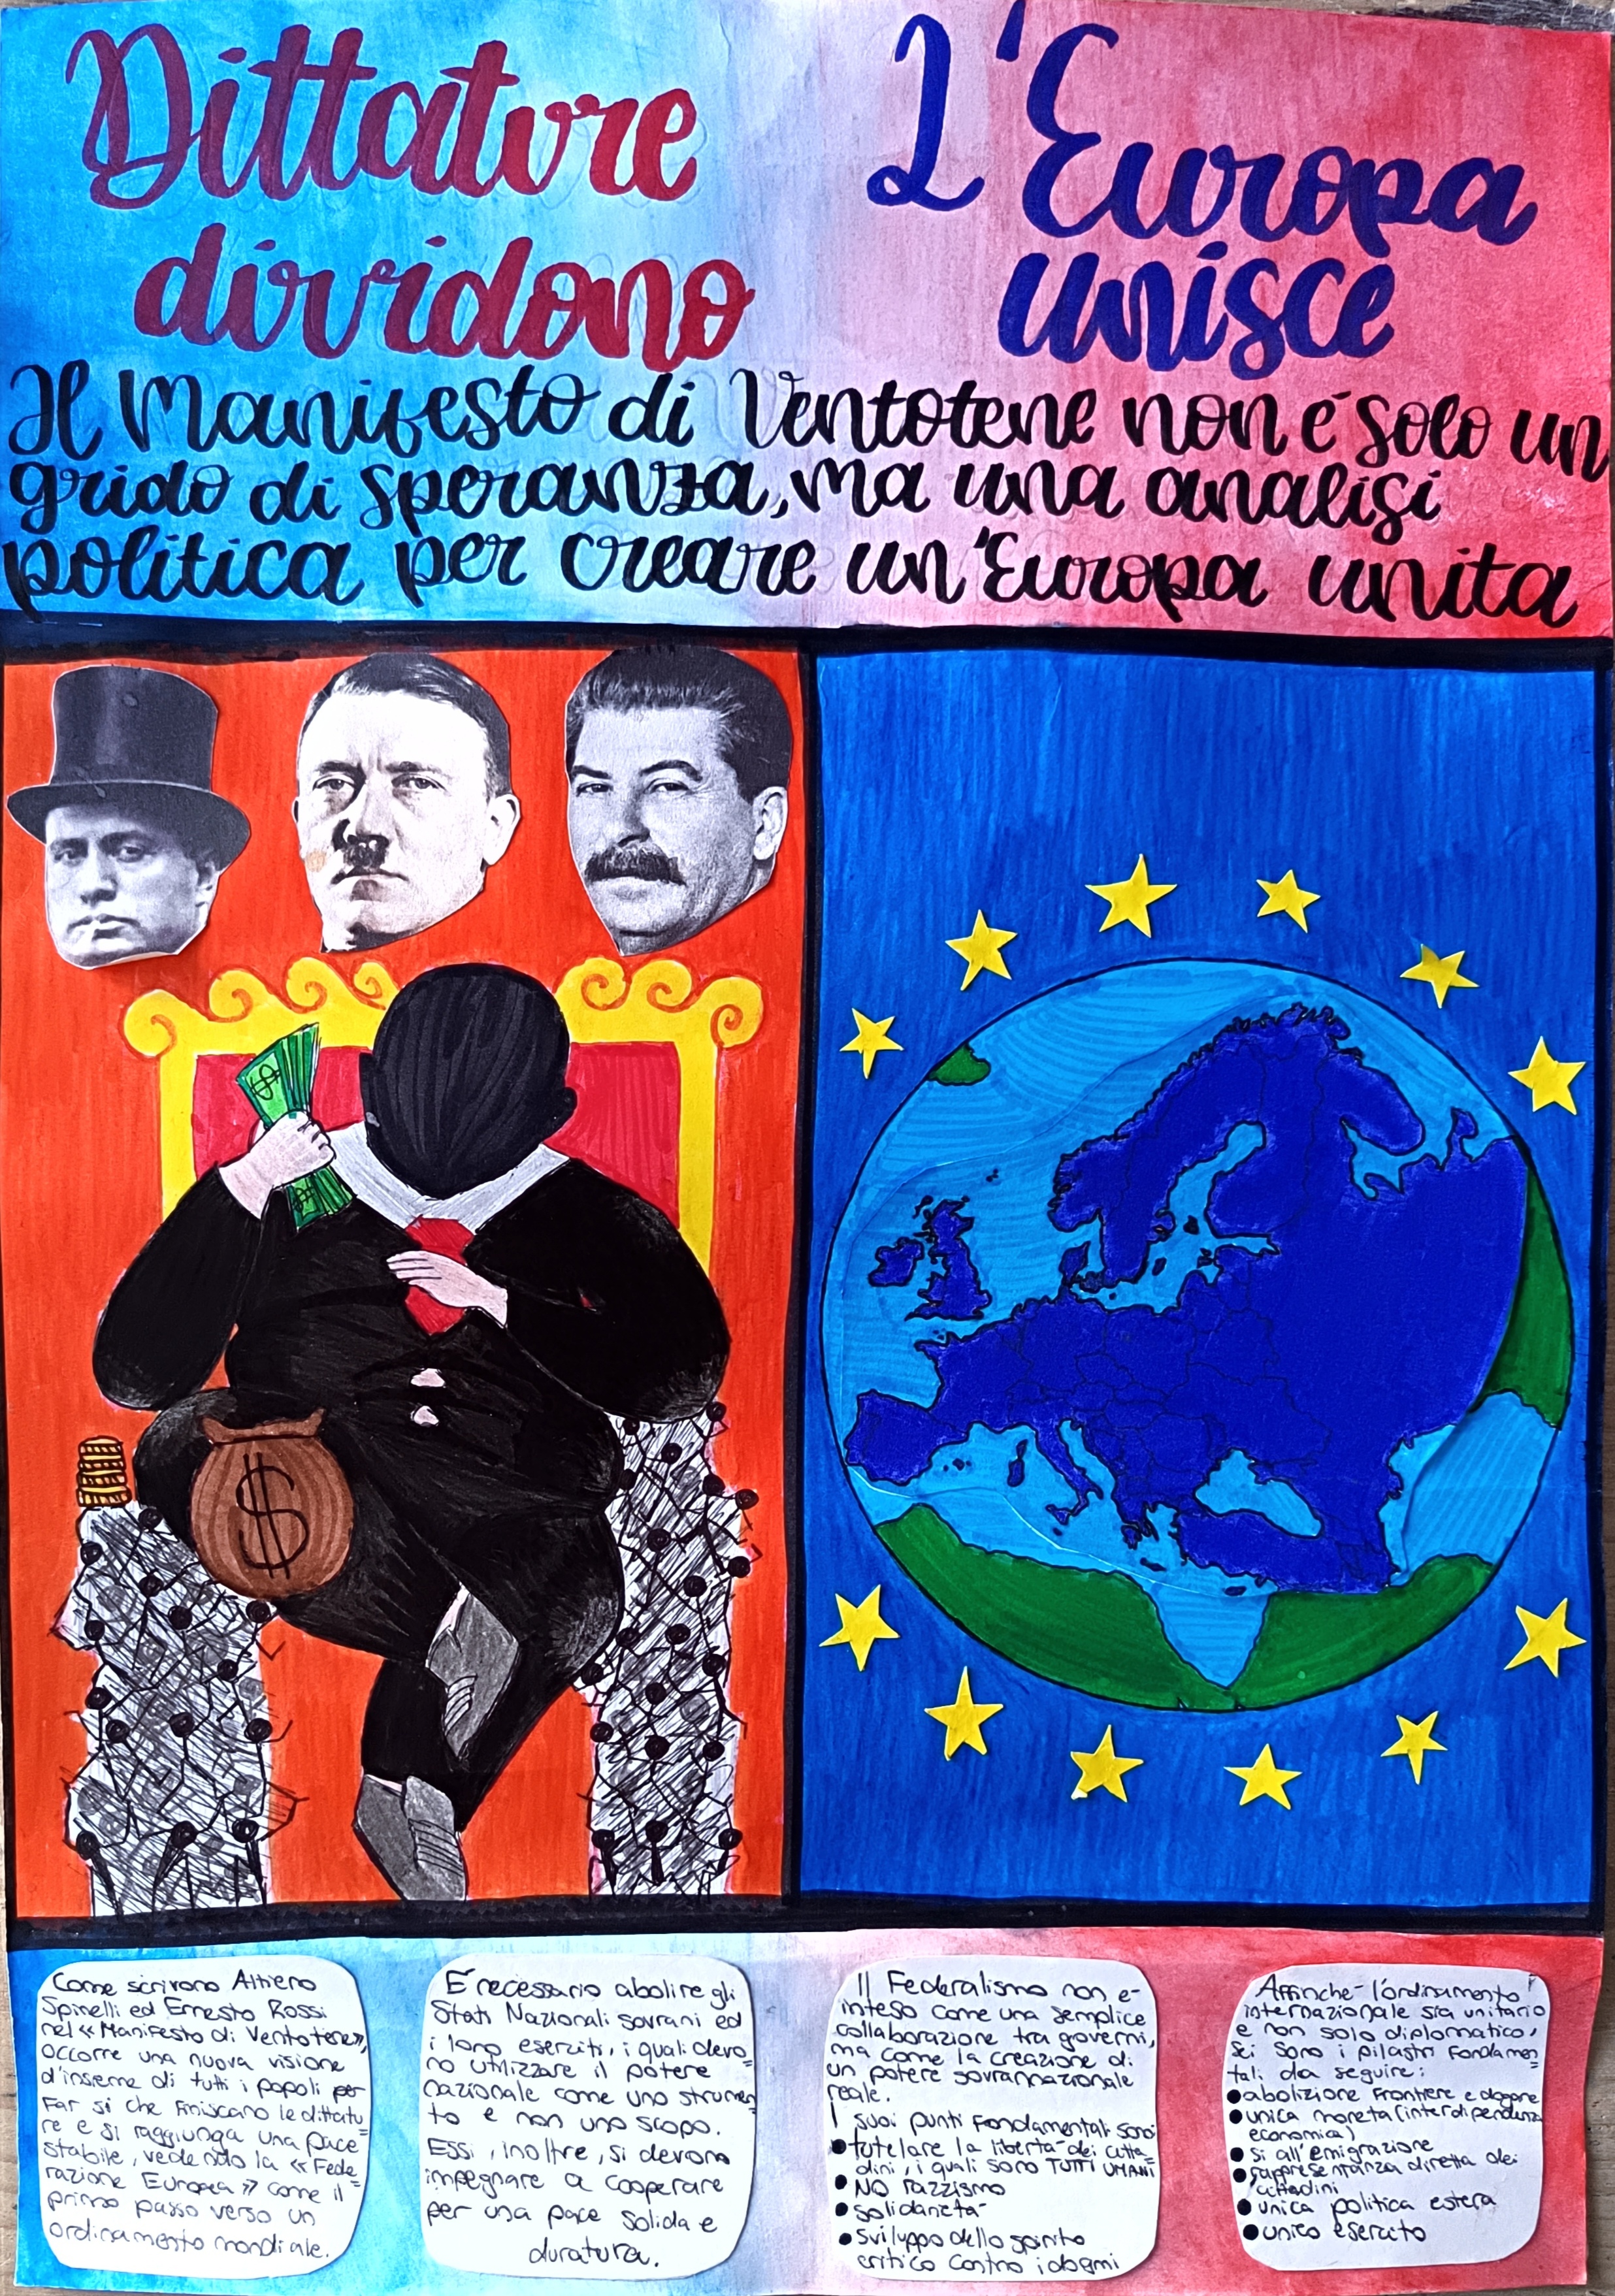 Dittature
dividono
L'Europa
unisce
Il Manifesto di Ventotene non é solo un
grido di speranza, ma una analisi
politica per creare un'Europa unita
$
$
Come scrivono Altiero
Spinelli ed Ernesto Rossi
nel «Manifesto di Ventotene»,
occorre una nuova visione
d'insieme di tutti i popoli per
far si che finiscano le dittatu=
re e si raggiunga una pace
stabile, vedendo la «Fede=
razione Europea» come il
primo passo verso un
ordinamento mondiale.
É necessario abolire gli
Stati Nazionali sovrani ed
i loro eserciti, i quali devo=
no utilizzare il potere
nazionale come uno strumen=
to e non uno scopo.
Essi, inoltre, si devono
impegnare a cooperare
per una pace solida e
duratura.
Il Federalismo non e-
inteso come una semplice
collaborazione tra governi,
ma come la creazione di
un potere sovrannazionale
reale.
I suoi punti fondamentali sono:
● tutelare la libertá dei citta=
dini, i quali sono TUTTI UMANI
● NO razzismo
● solidarietá
● sviluppo dello spirito
critico contro i dogmi
Affinché l'ordinamento
internazionale sia unitario
e non solo diplomatico,
sei sono i pilastri fondamen=
tali da seguire:
● abolizione frontiere e dogane
● unica moneta (interdipendenza
economica)
● si all'emigrazione
● rappresentanza diretta dei
cittadini
● unica politica estera
● unico esercito